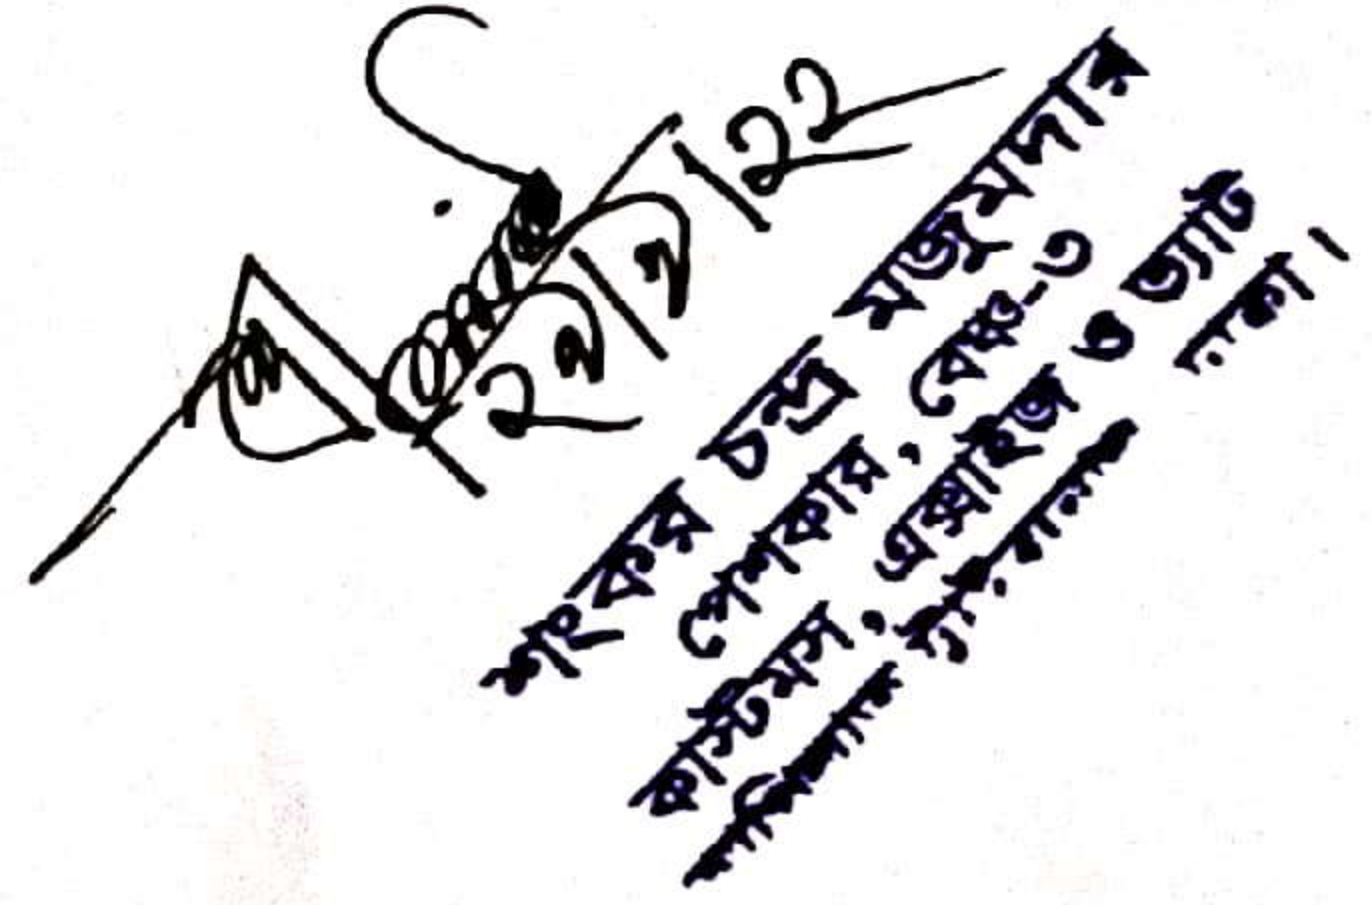 ২৭/৭/২২
শংকর চন্দ্র মজুমদার
পেশকার, বেঞ্চ-৩
কাস্টমস, এক্সাইজ ও ভ্যাট